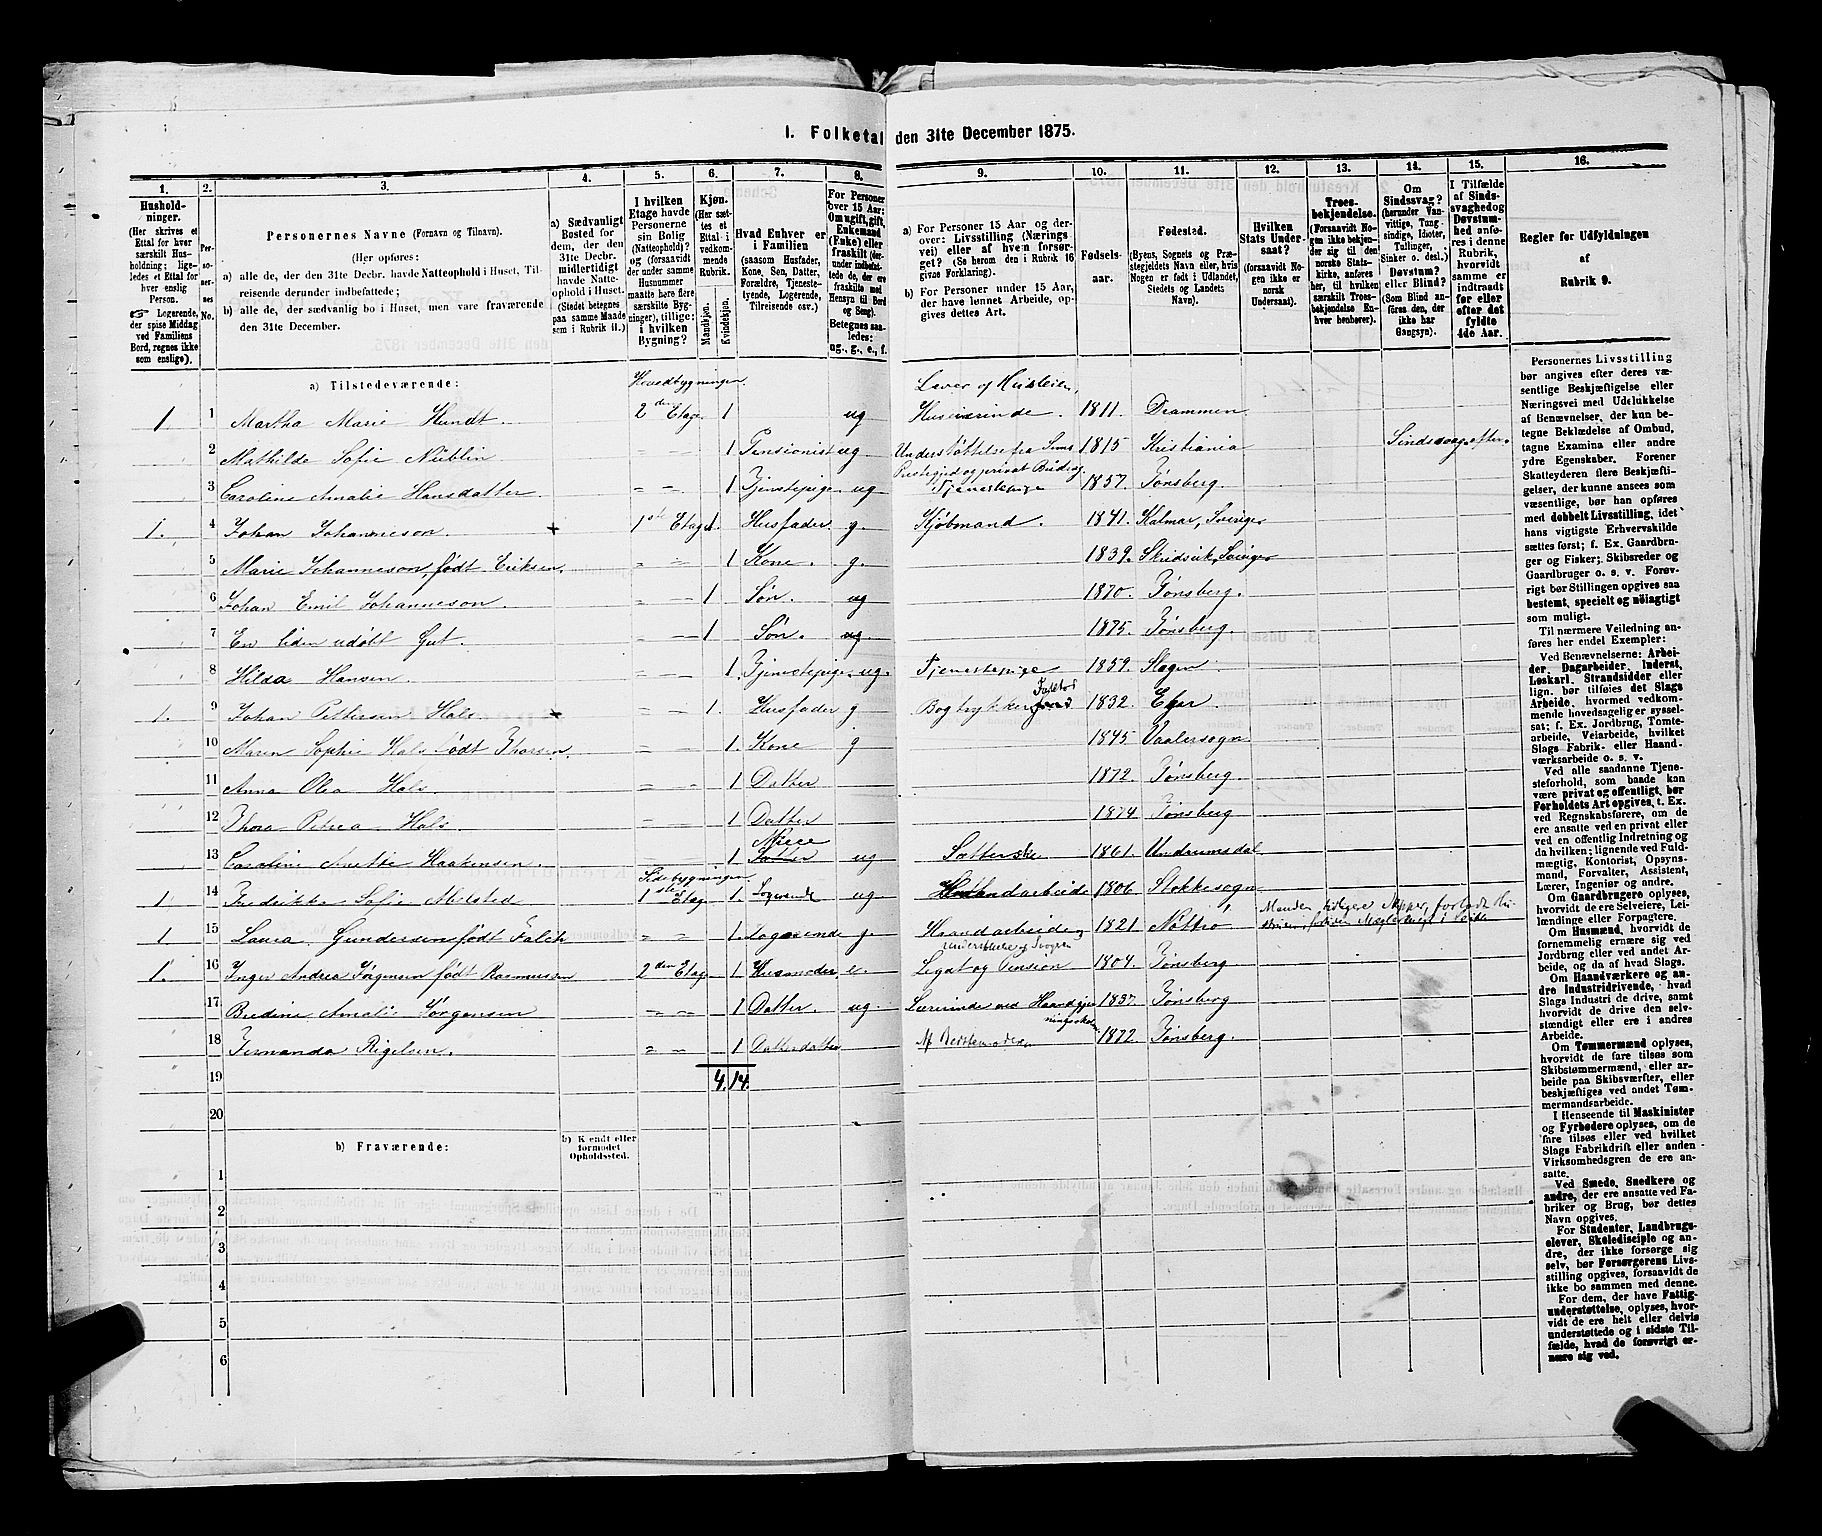 1. Folketal den 31te December 1875.
1. 2. 3. 4. 5. 6. 7. 8. 9. 10. 11. 12. 13. 14. 15. 16.
Hushold-
ninger.
(Her skrives et
Ettal for hver
særskilt Hus-
holdning; lige-
ledes et Ettal for
hver enslig
Person.
☞ Logerende,
der spise Middag
ved Familiens
Bord, regnes ikke
som enslige).
Per-
so-
ner-
nes
No.
Personernes Navne (Fornavn og Tilnavn).
(Her opføres:
a) alle de, der den 31te Decbr. havde Natteophold i Huset, Til-
reisende derunder indbefattede;
b) alle de, der sædvanlig bo i Huset, men vare fraværende
den 31te December.
a) Sædvanligt
Bosted for
dem, der den
31te Decbr.
midlertidigt
havde Natte-
ophold i Huset.
(Stedet betegnes
paa samme Maade
som i Rubrik 11.)
I hvilken
Etage havde
Personerne
sin Bolig
(Natteophold)?
og (forsaavidt
der under samme
Husnummer
maatte høre flere
særskilte Byg-
ninger), tillige:
i hvilken
Bygning?
Kjøn.
(Her sæt-
tes et
Ettal i
vedkom-
mende
Rubrik.
Mandkjøn.
Kvindekjøn.
Hvad Enhver er
i Familien
(saasom Husfader,
Kone, Søn, Datter,
Forældre, Tjeneste-
tyende, Logerende,
Tilreisende osv.)
For Personer
over 15 Aar:
Om ugift, gift,
Enkemand
(Enke) eller
fraskilt (der-
under indbefat-
tede de, der ere
fraskilte med
Hensyn til Bord
og Seng).
Betegnes saa-
ledes:
ug., g., e., f.
a) For Personer 15 Aar og der-
over: Livsstilling (Nærings-
vei) eller af hvem forsør-
get? (Se herom den i Rubrik 16
givne Forklaring).
b) For Personer under 15 Aar,
der have lønnet Arbeide, op-
gives dettes Art.
Fødsels-
aar.
Fødested.
(Byens, Sognets og Præ-
stegjeldets Navn eller, hvis
Nogen er født i Udlandet,
Stedets og Landets
Navn).
Hvilken
Stats Under-
saat?
(forsaavidt No-
gen ikke er
norsk
Undersaat).
Troes-
bekjendelse.
(Forsaavidt No-
gen ikke bekjen-
der sig til den
norske Stats-
kirke, anføres
her, til hvilken
særskilt Troes-
bekjendelse En-
hver henhører).
Om
Sindssvag?
(herunder Van-
vittige, Tung-
sindige, Idioter,
Tullinger,
Sinker o. desl.)
Døvstum?
eller Blind?
(Som Blind an-
føres den, der
ikke har
Gangsyn).
I Tilfælde
af Sinds-
svaghed og
Døvstum-
hed anfø-
res i denne
Rubrik,
hvorvidt
samme er
indtraadt
før eller
efter det
fyldte
4de Aar.
Regler for Udfyldningen
af
Rubrik 9.
a) Tilstedeværende: Hovedbygningen Lever af Husleien,
1 1 Martha Marie Hundt. 2den Etage 1 ug Huseierinde. 1811. Drammen
2 Mathilde Sofie Nüblin 1 Pensionist ug Understøttelse fra 1815 Kristiania Sindssvag efter.
3 Caroline Amalie Hansdatter. 1 Tjenestepige ug og privat Bidrag. Tjenestepige 1857. Tønsberg.
1. 4 Johan Johanneson. 1ste Etage 1. Husfader g. Kjøbmand. 1841. Kalmar, Sverige
5 Marie Johanneson, født Eriksen. 1 Kone. g. 1839. Skridsvik, Sverige
6 Johan Emil Johanneson. 1 Søn. ug 1870. Tønsberg.
7 En liden udøbt Gut. 1 Søn. ug. 1875. Tønsberg.
8 Hilda Hansen. 1. Tjenestepige ug. Tjenestepige 1859. Slagen
1. 9 Johan Pettersen Hals 1. Husfader g Bogtrykker Faktor 1832. Eger
10 Maren Sophie Hals født Thorsen. 1. Kone g 1845. Vaalersogn
11 Anna Olea Hals. 1 Datter 1872. Tønsberg.
12 Thora Petrea Hals. 1. Datter 1874. Tønsberg
13 Caroline Anette Haakensen. 1 Niece Datter ug Sætterske 1861. Undrumsdal
1 14 Fredrikke Sofie Melsted Sidebygningen 1ste Etage 1. Logerende ug Haandarbeide 1806. Stokkesogn
1 15 Laura Gundersen født Falch 1. Logerende g. Haandarbeide og Understøttelse af 1821. Nøttrø Manden tidligere Skipper,
1. 16 Inger Andrea Jørgensen født Rasmussen 2den Etage 1 Husmoder e. Legat og Pension 1804. Tønsberg
17 Bredine Amalie Jørgensen 1 Datter. ug. Lærerinde ved Haandgjerningsskolen 1837. Tønsberg
18 Fernanda Rigelsen. 1 Datterdatter 1872. Tønsberg.
19 4. 14.
20
b) Fraværende:
b) Kjendt eller
formodet
Opholdssted.
1
2
3
4
5
6
Personernes Livsstilling
bør angives efter deres væ-
sentlige Beskjæftigelse eller
Næringsvei med Udelukkelse
af Benævnelser, der kun be-
tegne Beklædelse af Ombud,
tagne Examina eller andre
ydre Egenskaber. Forener
Skatteyderen flere Beskjæfti-
gelser, der kunne ansees som
væsentlige, bør han opføres
med dobbelt Livsstilling, idet
hans vigtigste Erhvervskilde
sættes først; f. Ex. Gaardbru-
ger og Fisker; Skibsreder og
Gaardbruger o. s. v. Forøv-
rigt bør Stillingen opgives saa
bestemt, specielt og nøiagtigt
som muligt.
Til nærmere Veiledning an-
føres her endel Exempler:
Ved Benævnelserne: Arbei-
der, Dagarbeider, Inderst,
Løskarl, Strandsidder eller
lign. bør tilføies det Slags
Arbeide, hvormed vedkom-
mende hovedsagelig er syssel-
sat; f. Ex. Jordbrug, Tomte-
arbeide, Veiarbeide, hvilket
Slags Fabrik- eller Haand-
værksarbeide o. s. v.
Ved alle saadanne Tjene-
steforhold, som baade kan
være privat og offentligt, bør
Forholdets Art opgives, t. Ex.
ved Regnskabsførere, om de
ere ansatte ved en privat eller
ved en offentlig Indretning og
da hvilken; lignende ved Fuld-
mægtig, Kontorist, Opsyns-
mand, Forvalter, Assistent,
Lærer, Ingeniør og andre.
Om Gaardbrugere oplyses,
hvorvidt de ere Selveiere, Lei-
lændinge eller Forpagtere.
Om Husmænd, hvorvidt de
fornemmelig ernære sig ved
Jordbrug eller ved andet Ar-
beide, og da af hvad Slags.
Om Haandværkere og an-
dre Industridrivende, hvad
Slags Industri de drive, samt
hvorvidt de drive den selv-
stændigt eller ere i andres
Arbeide.
Om Tømmermænd oplyses,
hvorvidt de fare tilsøs som
Skibstømmermænd, eller ar-
beide paa Skibsværfter, eller
beskjæftiges ved andet Tøm-
mermandsarbeide.
I Henseende til Maskinister
og Fyrbødere oplyses, om de
fare tilsøs eller ved hvilket
Slags Fabrikdrift eller anden
Virksomhedsgren de ere an-
satte.
Ved Smede, Snedkere og
andre, der ere ansatte ved Fa-
briker og Brug, bør dettes
Navn opgives.
For Studenter, Landbrugs-
elever, Skoledisciple og an-
dre, der ikke forsørge sig
selv, bør Forsørgerens Livs-
stilling opgives, forsaavidt de
ikke bo sammen med denne.
For dem, der have Fattig-
understøttelse, oplyses, hvor-
vidt de ere helt eller delvis
understøttede og i sidste Til-
fælde, hvad de forøvrigt er-
nære sig ved.